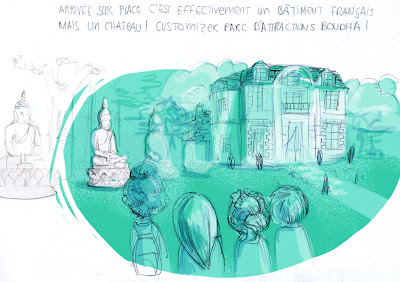 ARRIVÉE SUR PLACE C'EST EFFECTIVEMENT UN BÂTIMENT FRANÇAIS
MAIS UN CHATEAU! CUSTOMIZER PARC D'ATTRACTIONS BOUDHA!